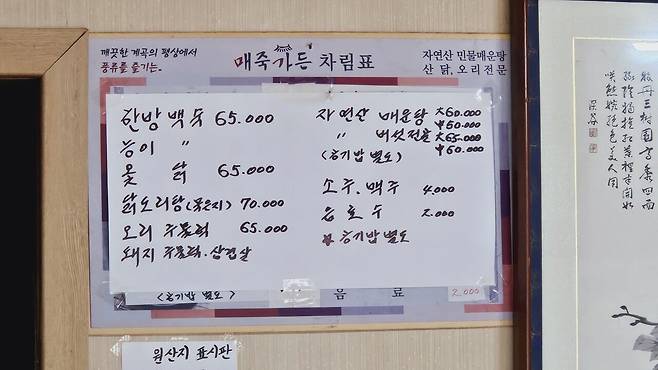 깨끗한 계곡의 평상에서
풍류를 즐기는.
매죽가든 차림표
자연산 민물매운탕
산 닭, 오리 전문
한방 백숙 65.000
능이 〃
옻 닭 65.000
닭도리탕(묵은지) 70.000
오리 주물럭 65.000
돼지 주물럭.삼겹살
자연산 매운탕 大60.000
中50.000
〃 버섯전골 大65.000
(공기밥 별도) 中50.000
소주.맥주 4.000
음료수 2.000
★ 공기밥 별도
(공기밥 별도) 음 료 2.000
원산지 표시판